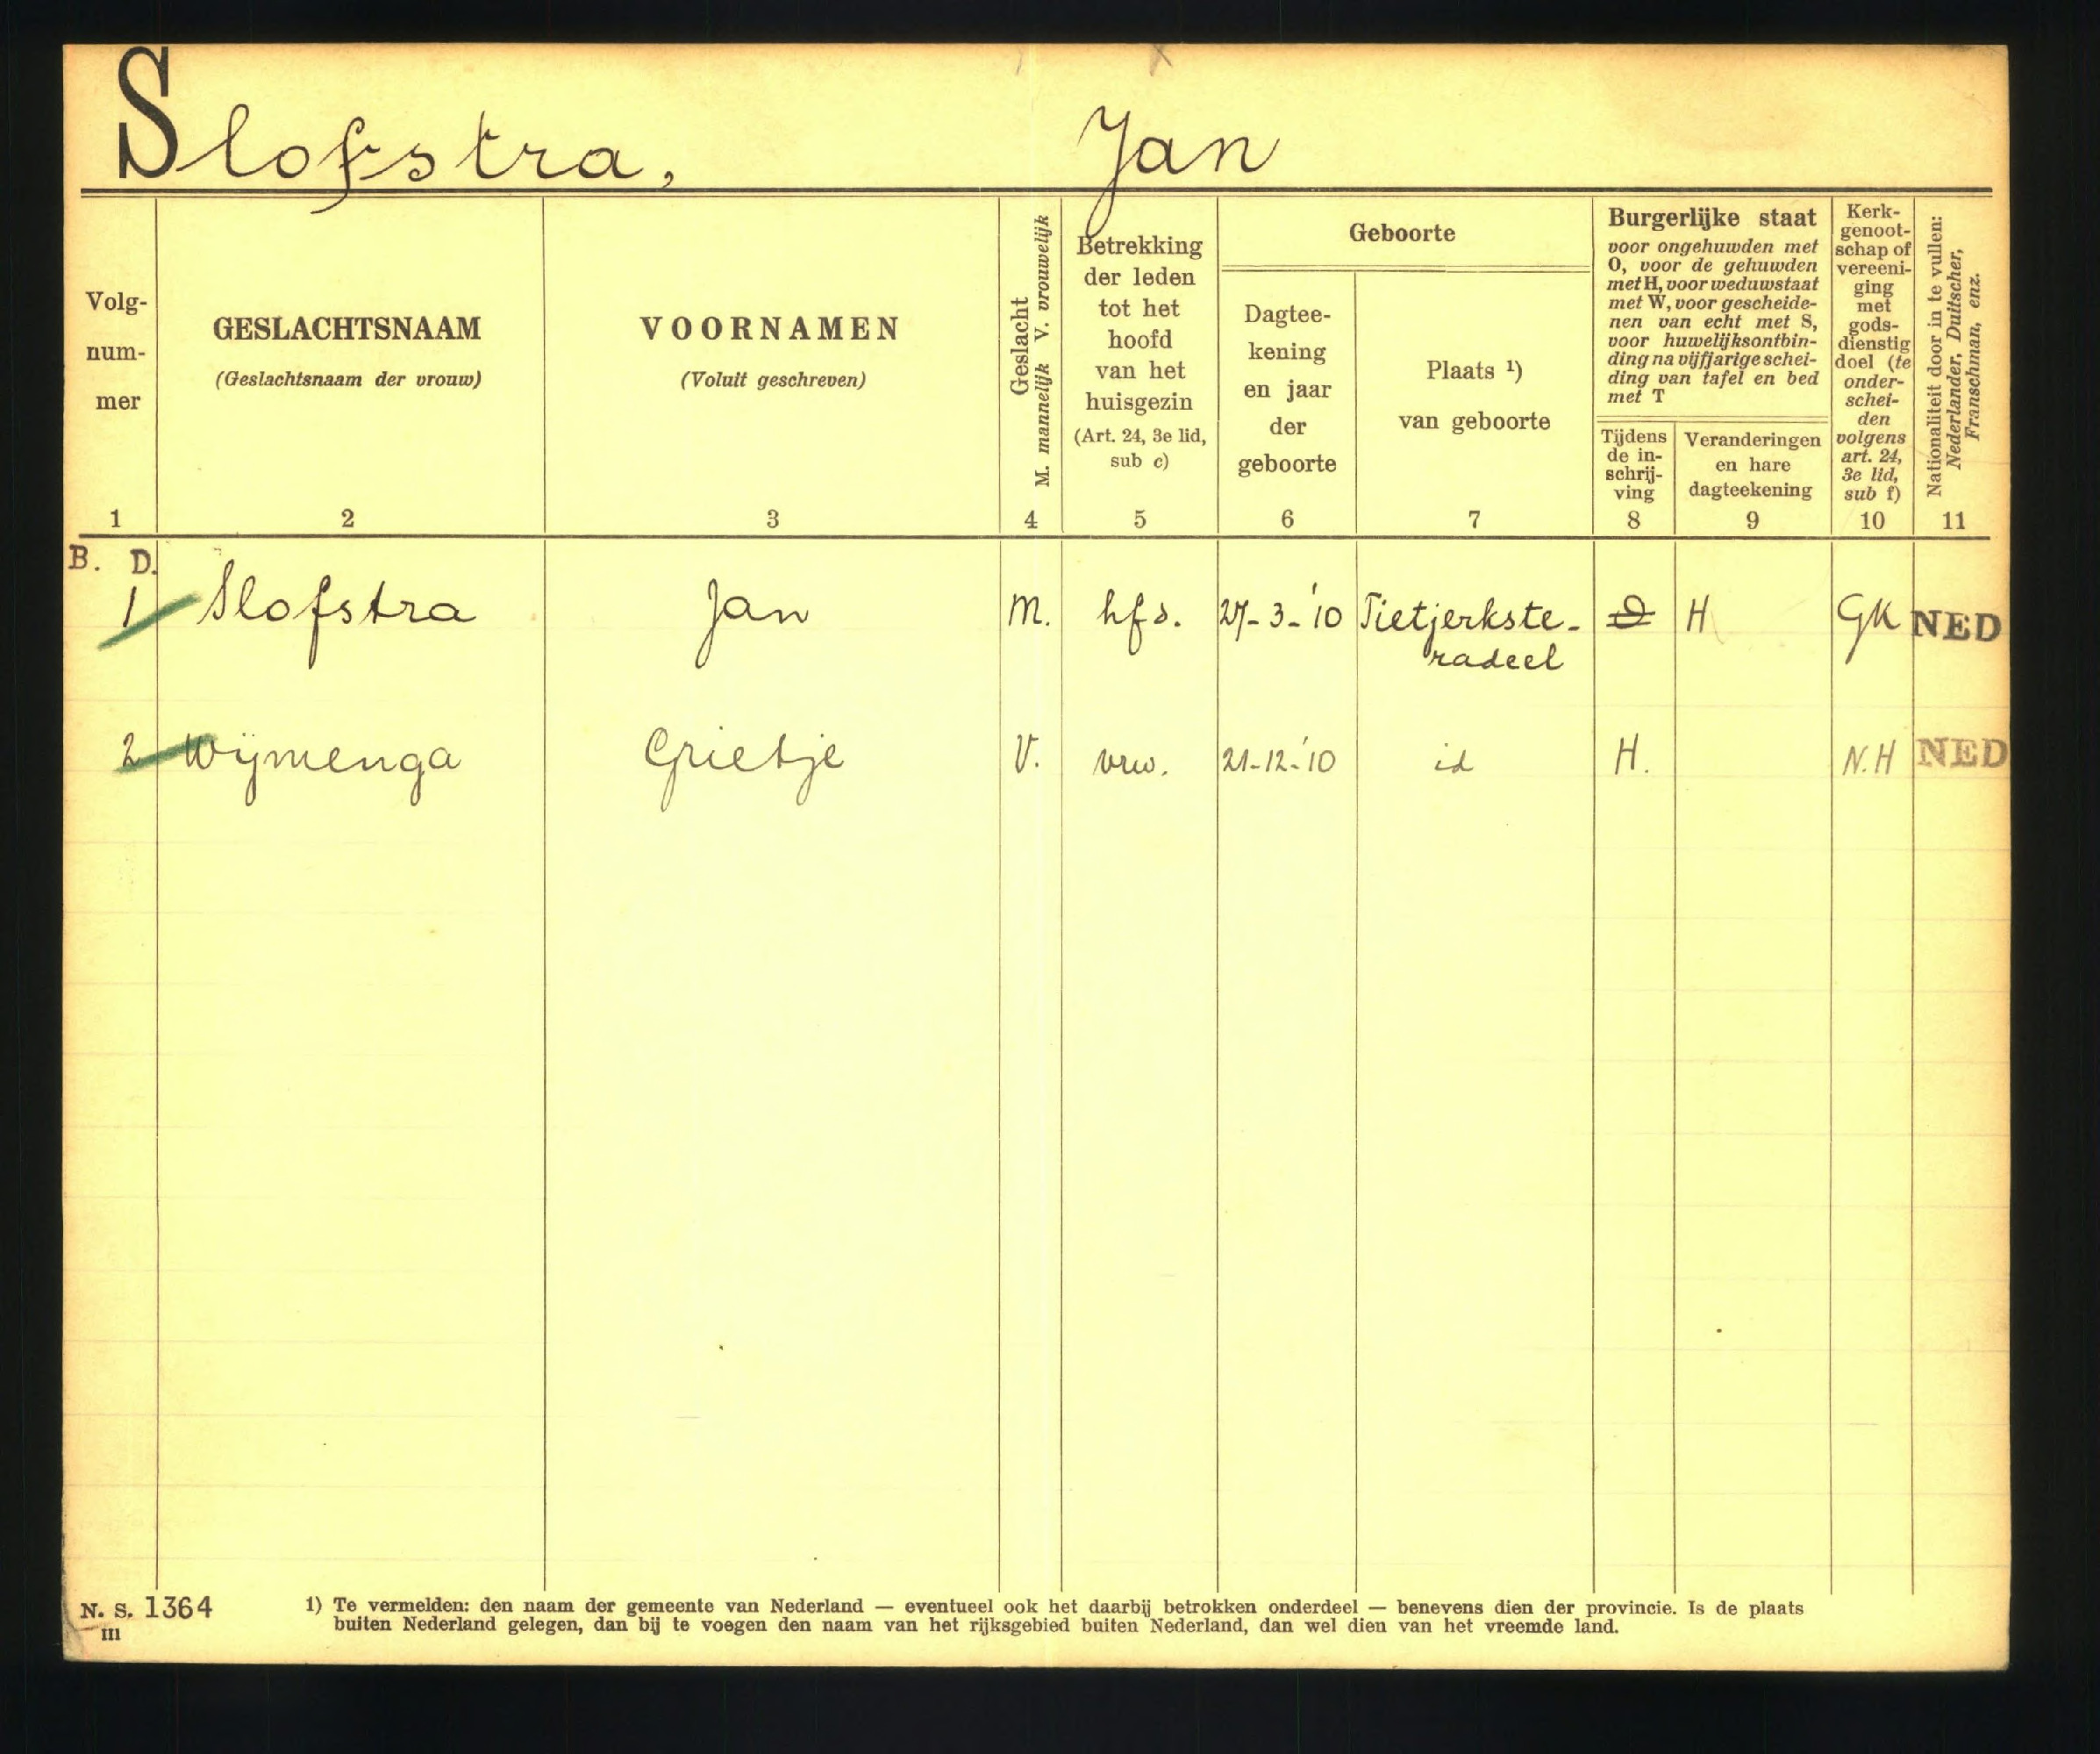 Slofstra, Jan
Volg-
num-
mer
1
GESLACHTSNAAM
(Geslachtsnaam der vrouw)
2
VOORNAMEN
(Voluit geschreven)
3
Geslacht
M. mannelijk V. vrouwelijk
4
Betrekking
der leden
tot het
hoofd
van het
huisgezin
(Art. 24, 3e lid,
sub c)
5
Geboorte
Dagtee-
kening
en jaar
der
geboorte
6
Plaats ¹)
van geboorte
7
Burgerlijke staat
voor ongehuwden met
O, voor de gehuwden
met H, voor weduwstaat
met W, voor gescheide-
nen van echt met S,
voor huwelijksontbin-
ding na vijfjarige schei-
ding van tafel en bed
met T
Tijdens
de in-
schrij-
ving
8
Veranderingen
en hare
dagteekening
9
Kerk-
genoot-
schap of
vereeni-
ging
met
gods-
dienstig
doel (te
onder-
schei-
den
volgens
art. 24,
3e lid,
sub f)
10
Nationaliteit door in te vullen:
Nederlander, Duitscher,
Franschman, enz.
11
B. D.
1 Slofstra Jan M. hfs. 27-3-'10 Tietjerkste- O H GK NED
radeel
2 Wijmenga Grietje V. vrw. 21-12-'10 id H. N.H NED
N. S. 1364
III
1) Te vermelden: den naam der gemeente van Nederland — eventueel ook het daarbij betrokken onderdeel — benevens dien der provincie. Is de plaats
buiten Nederland gelegen, dan bij te voegen den naam van het rijksgebied buiten Nederland, dan wel dien van het vreemde land.